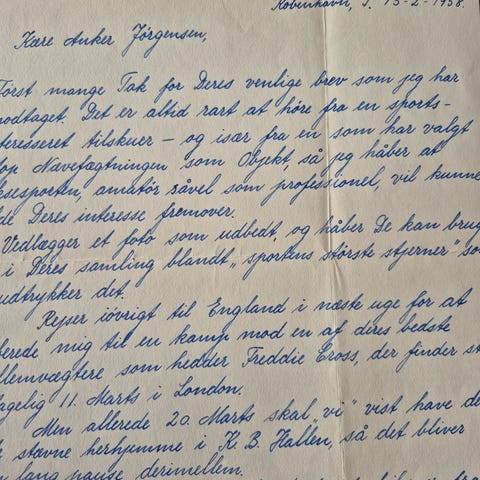 København, S. 15-2-1958.
Kære Anker Jørgensen,
Först mange Tak for Deres venlige brev som jeg har
modtaget. Det er altid rart at höre fra en sports-
teresseret tilskuer — og især fra en som har valgt
top Navefægtningen som Objekt, så jeg håber at
ksesporten, amatör såvel som professionel, vil kunne
lde Deres interesse fremover.
Vedlægger et foto som udbedt, og håber De kan brug
i Deres samling blandt „sportens störste stjerner" so
udtrykker det.
Rejser iövrigt til England i næste uge for at
berede mig til en kamp mod en af deres bedste
llemvægtere som hedder Freddie Cross, der finder st
agelig 11. Marts i London.
Men allerede 20. Marts skal „vi" vist have de
te stævne herhjemme i K. B. Hallen, så det bliver
n lang pause derimellem.